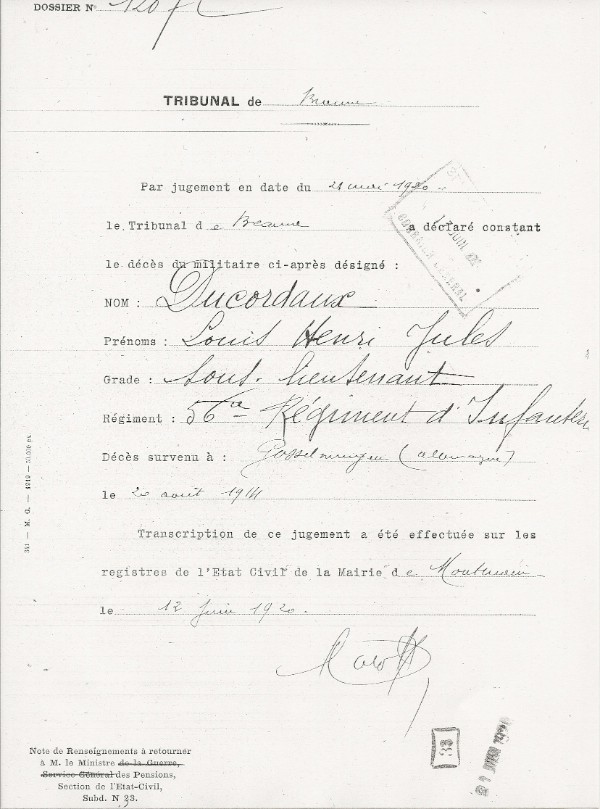 DOSSIER N°
TRIBUNAL de Beaune
Par jugement en date du 21 mai 1920
le Tribunal de Beaune a déclaré constant
le décès du militaire ci-après désigné :
NOM : Ducordaux
Prénoms : Louis Henri Jules
Grade : Sous-lieutenant
Régiment : 56e Régiment d'Infanterie
Décès survenu à : (Allemagne)
le 20 août 1914
Transcription de ce jugement a été effectuée sur les
registres de l'Etat Civil de la Mairie de
le 12 Juin 1920.
Note de Renseignements à retourner
à M. le Ministre de la Guerre,
Service Général des Pensions,
Section de l'Etat-Civil,
Subd. N 23.